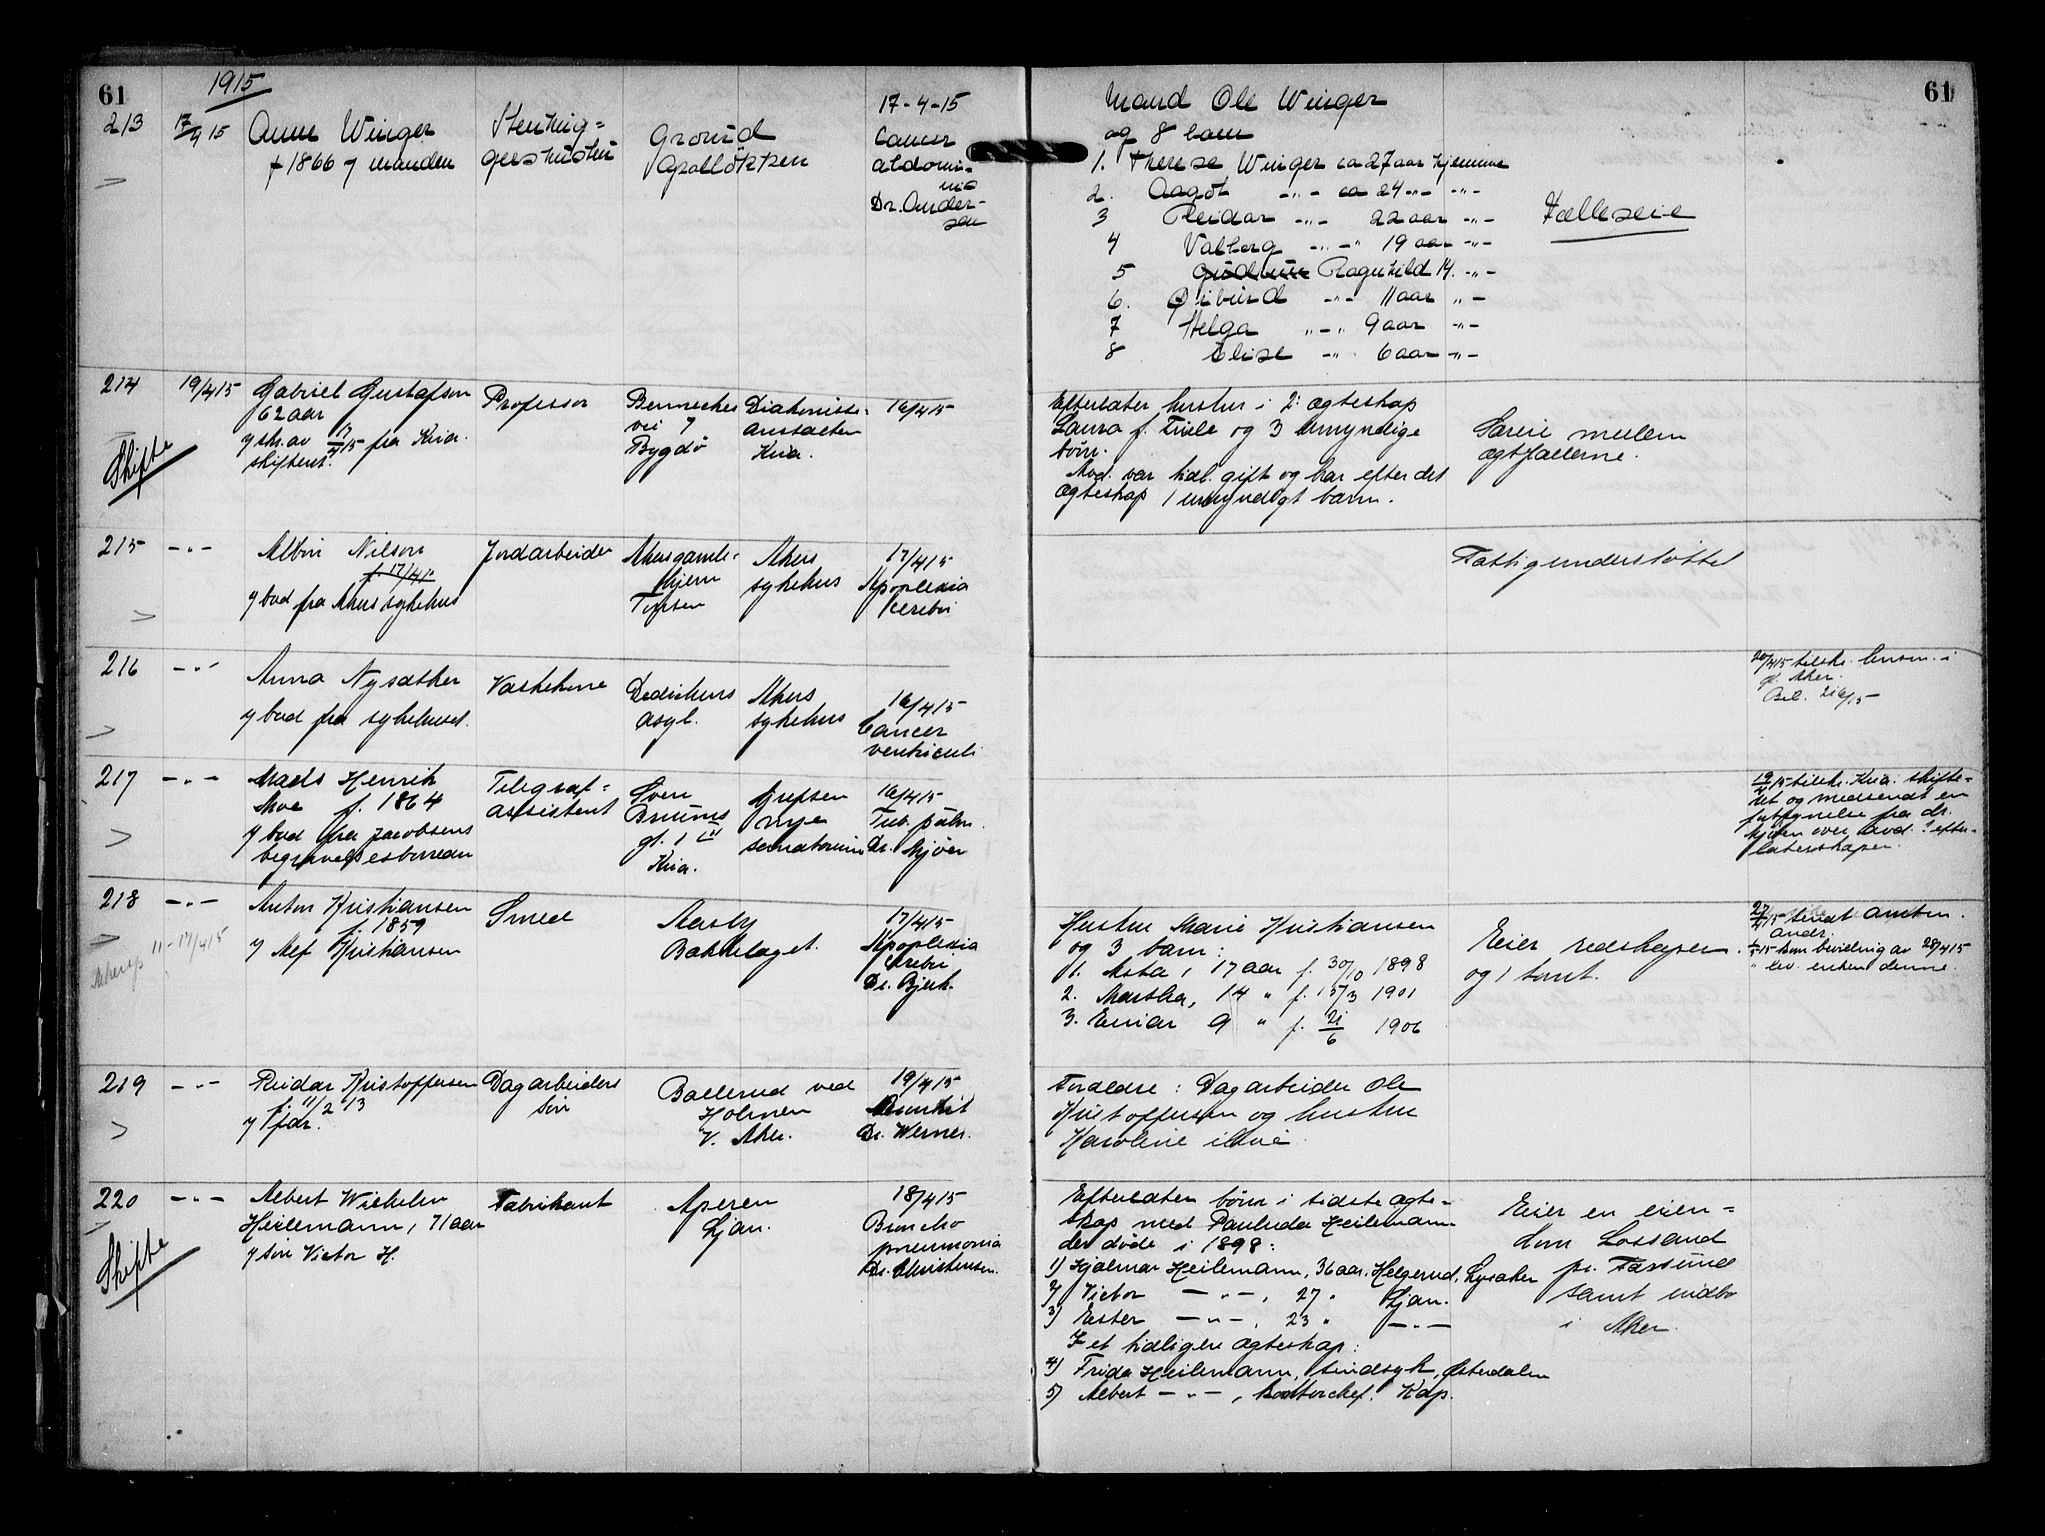 61
1915
213
17/4 15
Anne Winger
f 1866 v manden
Stenhug=
gershustru
Grorud
17-4-15
Cancer
abdomi-
nis
Dr. Ander-
sen
61
Mand Ole Winger
og 8 barn
1. Therese Winger ca 27 aar hjemme
2. Aagot -"- ca 24 -"- -"-
3 Reidar -"- 22 aar -"-
Fælleseie
4 Valborg -"- 19 aar -"-
5 Gudrun Ragnhild 14. -"-
6. -"- 11 aar -"-
7 Helga -"- 9 aar -"-
8 Elise -"- 6 aar -"-
214
19/4 15
Gabriel Gustafson
62 aar
v skr. av 17/4 15 fra Kria.
skifteret.
Skifte
Professor
Benneches
vei 7
Bygdø
Diakonisse-
anstalten
Kria.
16/4 15
Efterlater hustru i 2: ægteskap
Laura f. og 3 umyndige
børn.
Avd. var tidl. gift og har efter det
ægteskap 1 umyndigt barn.
Særeie mellem
ægtfællerne.
215
-"-
Albin Nilson
f. 17/4 15
v bud fra Akers sykehus
Jordarbeider
Akers gamle-
hjem
Akers
sykehus
17/4 15
Apoplexia
cerebri
Fattigunderstøttet
216
-"-
Anna Nysæther
v bud fra sykehuset.
Vaskekone
Dedichens
asyl.
Akers
sykehus
16/4 15
Cancer
ventriculi
20/4 15 tilskr. lensm. i
Aker.
217
-"-
Mads Henrik
Moe f. 1864
v bud fra Jacobsens
begravelsesbureau
Telegraf=
assistent
Sven
Bruuns
gt. 1 III
Kria.
Grefsen
nye
sanatorium
16/4 15
Tub. pulm.
Dr. Mjøen
19/4 15 tilskr. Kria. skifte=
ret og medsendt en
fortegnelse fra dr.
Mjøen over avd.s efter-
laterskaper.
218
-"-
11-17/4 15
Anton Kristiansen
f. 1859
v Alf Kristiansen
Smed
Aasly
Bakkelaget.
17/4 15
Apoplexia
cerebri
Dr. Bjerk.
Hustru Marie Kristiansen
og 3 barn:
1. Asta, 17 aar f. 30/10 1898
2. Martha, 14 " f. 15/3 1901
3. Einar 9 " f. 21/6 1906
Eier redskaper
og 1 tomt.
27/4 15 sendt amtm.
andr.
15 kom bevilling av 28/4 15
" lev. enken denne.
219
-"-
Reidar Kristoffersen
f. 11/2 13
v fdr.
Dagarbeiders
søn
Ballerud ved
Holmen
V. Aker.
19/4 15
Dr. Werner.
Foreldre: Dagarbeider Ole
Kristoffersen og hustru
Karoline
220
-"-
Albert Wilhelm
Heilemann, 71 aar
v søn Victor H.
Skifte
Fabrikant
Asperen
Ljan.
18/4 15
Broncho
pneumonia
Dr. Christensen.
Efterlater børn i sidste ægte-
skap med Paulida Heilemann
der døde i 1898:
1) Hjalmar Heilemann, 36 aar, Helgerud, Lysaker
2) Victor -"-, 27 " Ljan.
3) Ester -"-, 23 " -"-
I et tidligere ægteskap:
4) Frida Heilemann, sindsyk, Østerdalen
5) Albert -"-, Kontorchef, Kdp.
Eier en eien=
dom Lossand
pr. Farsund
samt indbo
i Aker.